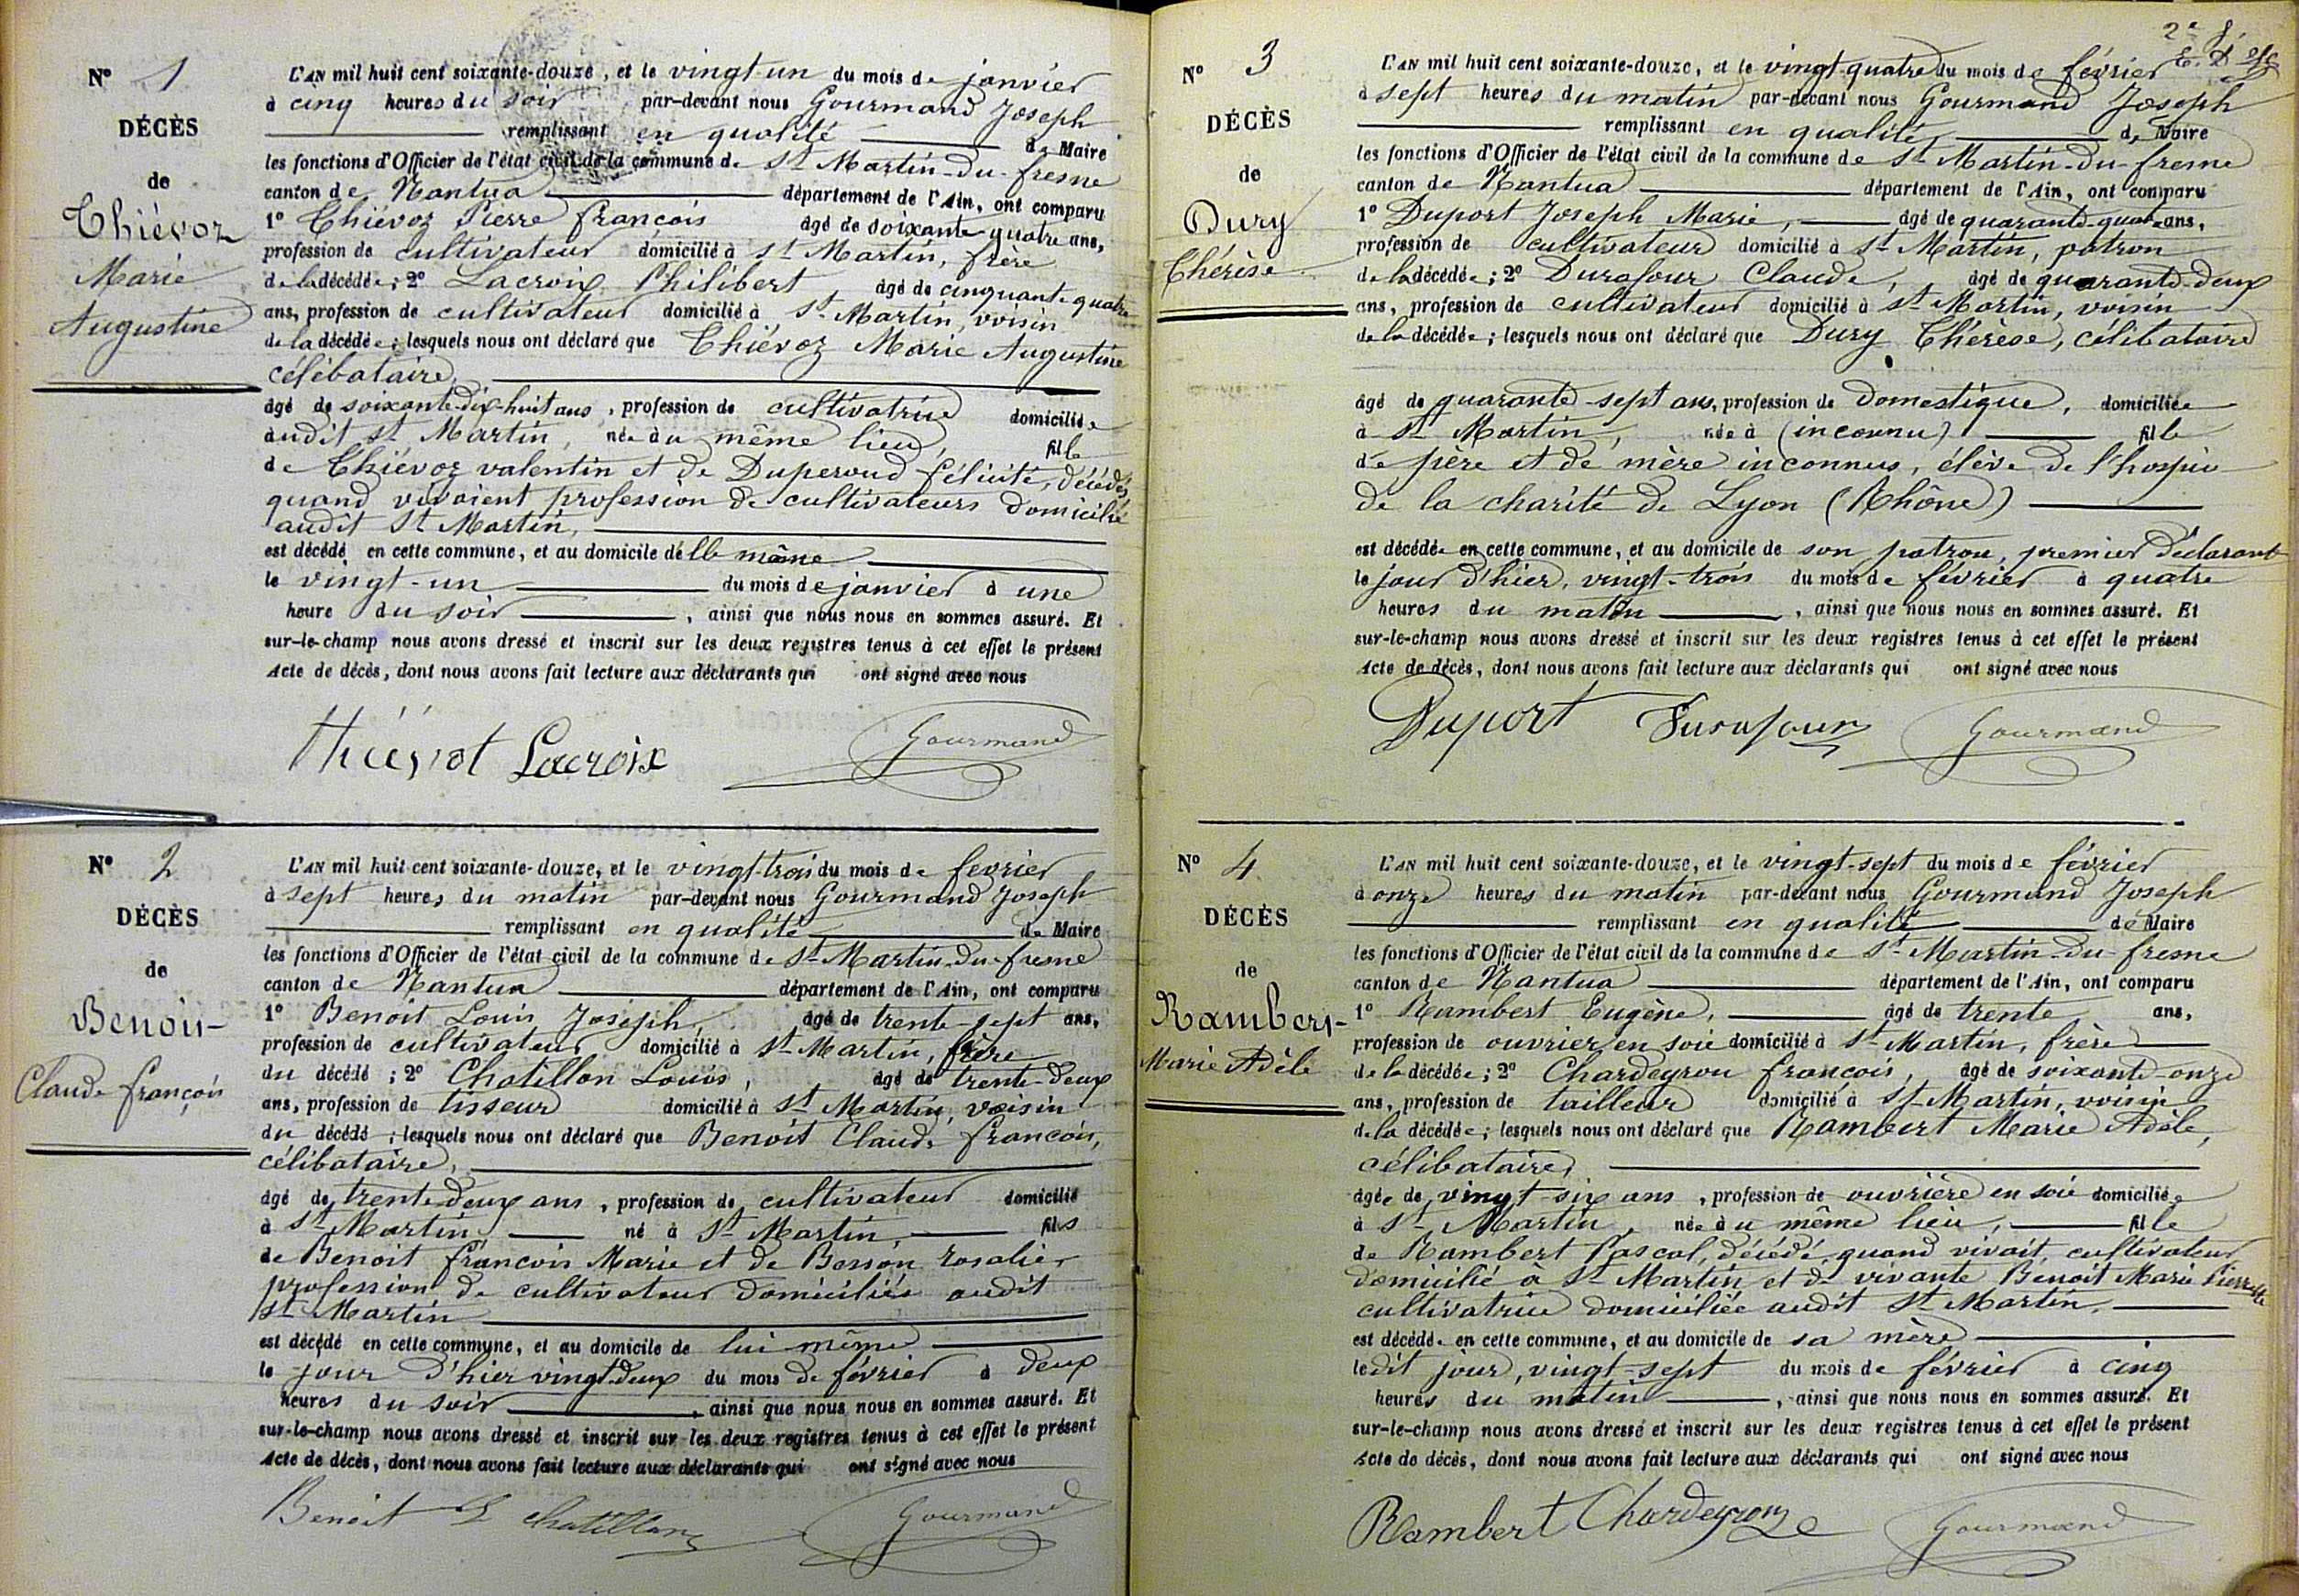 N° 1
DÉCÈS
de
Thiévoz
Marie
Augustine
L'AN mil huit cent soixante-douze, et le vingt-un du mois de janvier
à cinq heures du soir par-devant nous Gourmand Joseph
remplissant en qualité de Maire
les fonctions d'Officier de l'état civil de la commune de St Martin-du-fresne
canton de Nantua département de l'Ain, ont comparu
1° Thiévoz Pierre françois âgé de soixante quatre ans,
profession de cultivateur domicilié à St Martin, frère
de la décédée; 2° Lacroix Philibert âgé de cinquante quatre
ans, profession de cultivateur domicilié à St Martin, voisin
de la décédée; lesquels nous ont déclaré que Thiévoz Marie Augustine
célibataire,
âgé de soixante-dix-huit ans, profession de cultivatrice domiciliée
audit St Martin, née au même lieu, fille
de Thiévoz valentin et de Duperoud félicité, décédés,
quand vivaient profession de cultivateurs domicilié
audit St Martin,
est décédé en cette commune, et au domicile d'elle même
le vingt-un du mois de janvier à une
heure du soir, ainsi que nous nous en sommes assuré. Et
sur-le-champ nous avons dressé et inscrit sur les deux registres tenus à cet effet le présent
Acte de décès, dont nous avons fait lecture aux déclarants qui ont signé avec nous
Lacroix Gourmand
N° 2
DÉCÈS
de
Benoit
Claude françois
L'AN mil huit cent soixante-douze, et le vingt-trois du mois de fevrier
à sept heures du matin par-devant nous Gourmand Joseph
remplissant en qualité de Maire
les fonctions d'Officier de l'état civil de la commune de St Martin-du-fresne
canton de Nantua département de l'Ain, ont comparu
1° Benoit Louis Joseph, âgé de trente-sept ans,
profession de cultivateur domicilié à St Martin, frère
du décédé; 2° Chatillon Louis, âgé de trente-deux
ans, profession de tisseur domicilié à St Martin, voisin
du décédé; lesquels nous ont déclaré que Benoit Claude françois,
célibataire,
âgé de trente-deux ans, profession de cultivateur domicilié
à St Martin né à St Martin, fils
de Benoit françois Marie et de Bosson rosalie,
profession de cultivateur domiciliés audit
St Martin
est décédé en cette commune, et au domicile de lui même
le jour d'hier vingt-deux du mois de février à deux
heures du soir, ainsi que nous nous en sommes assuré. Et
sur-le-champ nous avons dressé et inscrit sur les deux registres tenus à cet effet le présent
Acte de décès, dont nous avons fait lecture aux déclarants qui ont signé avec nous
Benoit L Chatillon Gourmand
N° 3
DÉCÈS
de
Dury
Thérèse
L'AN mil huit cent soixante-douze, et le vingt-quatre du mois de février
à sept heures du matin par-devant nous Gourmand Joseph
remplissant en qualité de Maire
les fonctions d'Officier de l'état civil de la commune de St Martin-du-fresne
canton de Nantua département de l'Ain, ont comparu
1° Duport Joseph Marie, âgé de quarante-quatre ans,
profession de cultivateur domicilié à St Martin, patron
de la décédée; 2° Durafour Claude, âgé de quarante-deux
ans, profession de cultivateur domicilié à St Martin, voisin
de la décédée; lesquels nous ont déclaré que Dury Thérèse, célibataire
âgé de quarante-sept ans, profession de Domestique, domiciliée
à St Martin, née à (inconnu) fille
de père et de mère inconnus, élève de l'hospice
de la charité de Lyon (Rhône)
est décédée en cette commune, et au domicile de son patron, premier déclarant
le jour d'hier, vingt-trois du mois de février à quatre
heures du matin, ainsi que nous nous en sommes assuré. Et
sur-le-champ nous avons dressé et inscrit sur les deux registres tenus à cet effet le présent
Acte de décès, dont nous avons fait lecture aux déclarants qui ont signé avec nous
Duport Durafour Gourmand
N° 4
DÉCÈS
de
Rambert
Marie Adèle
L'AN mil huit cent soixante-douze, et le vingt-sept du mois de février
à onze heures du matin par-devant nous Gourmand Joseph
remplissant en qualité de Maire
les fonctions d'Officier de l'état civil de la commune de St Martin-du-fresne
canton de Nantua département de l'Ain, ont comparu
1° Rambert Eugène, âgé de trente ans,
profession de ouvrier en soie domicilié à St Martin, frère
de la décédée; 2° Chardeyron françois, âgé de soixante-onze
ans, profession de tailleur domicilié à St Martin, voisin
de la décédée; lesquels nous ont déclaré que Rambert Marie Adèle,
célibataire,
âgée de vingt-six ans, profession de ouvrière en soie domiciliée
à St Martin, née au même lieu, fille
de Rambert Pascal, décédé, quand vivait, cultivateur
domicilié à St Martin et de vivante Benoit Marie Pierrette
cultivatrice domiciliée audit St Martin,
est décédée en cette commune, et au domicile de sa mère
ledit jour, vingt-sept du mois de février à cinq
heures du matin, ainsi que nous nous en sommes assuré. Et
sur-le-champ nous avons dressé et inscrit sur les deux registres tenus à cet effet le présent
Acte de décès, dont nous avons fait lecture aux déclarants qui ont signé avec nous
Rambert Chardeyron Gourmand